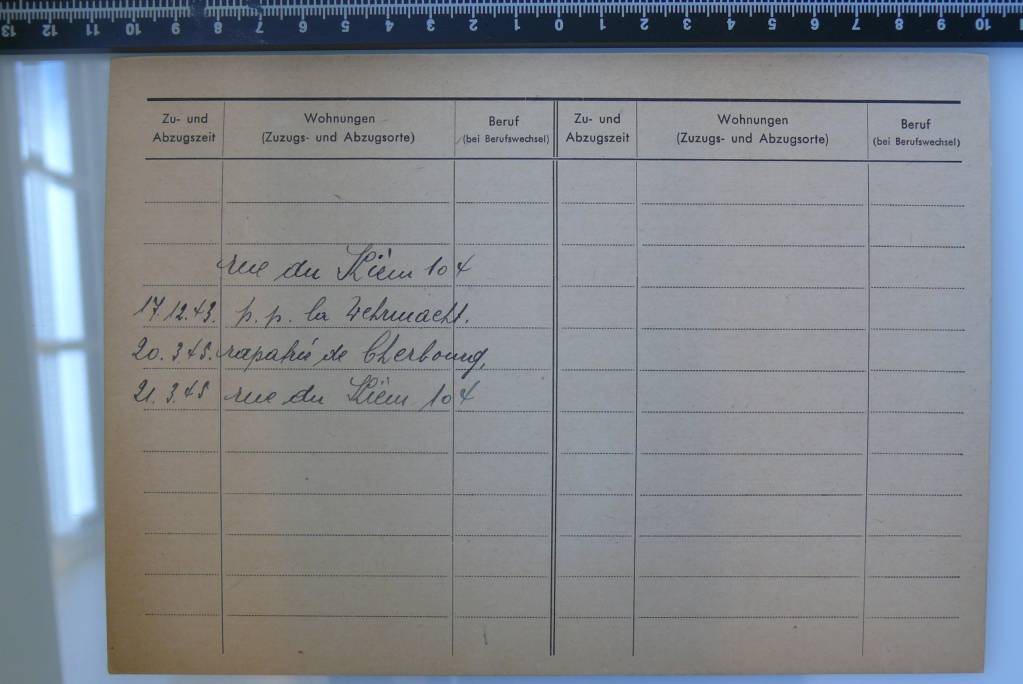 13 12 11 10 9 8 7 6 5 4 3 2 1 0 1 2 3 4 5 6 7 8 9 10
Zu- und Abzugszeit
Wohnungen (Zuzugs- und Abzugsorte)
Beruf (bei Berufswechsel)
Zu- und Abzugszeit
Wohnungen (Zuzugs- und Abzugsorte)
Beruf (bei Berufswechsel)
rue du Kiem 104
17.12.43. p. p. la Wehrmacht.
20.3.45. rapatrié de Cherbourg.
21.3.45 rue du Kiem 104